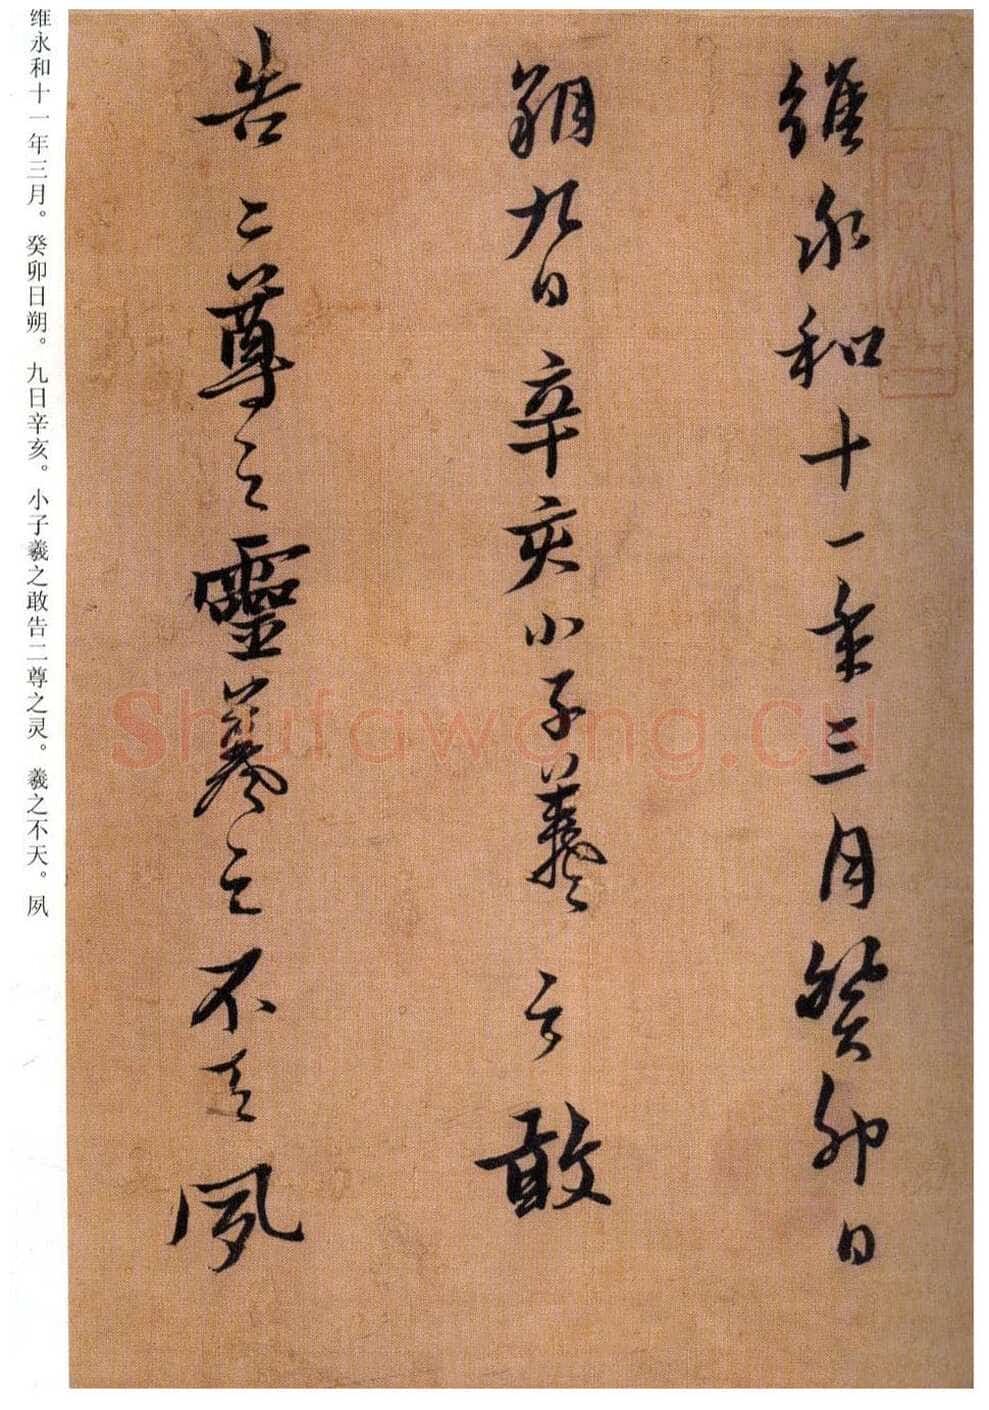 維永和十一年三月癸卯日
朔九日辛亥小子羲之敢
告二尊之靈羲之不天夙
维永和十一年三月。癸卯日朔。九日辛亥。小子羲之敢告二尊之灵。羲之不天。夙
Shufawang.cn